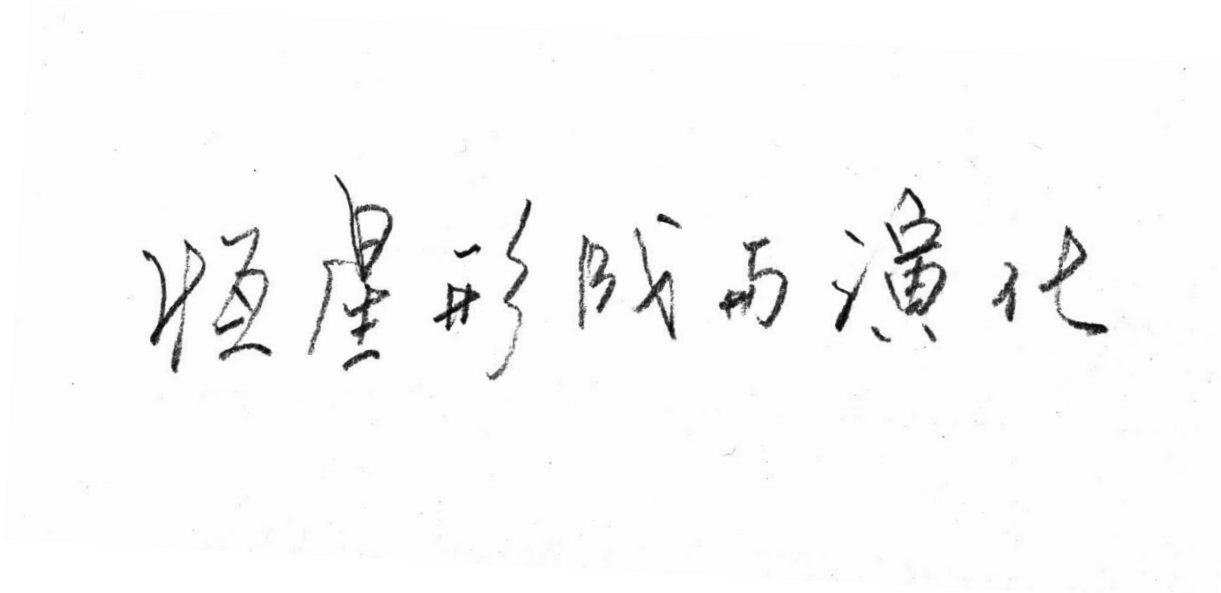 恒星形成与演化